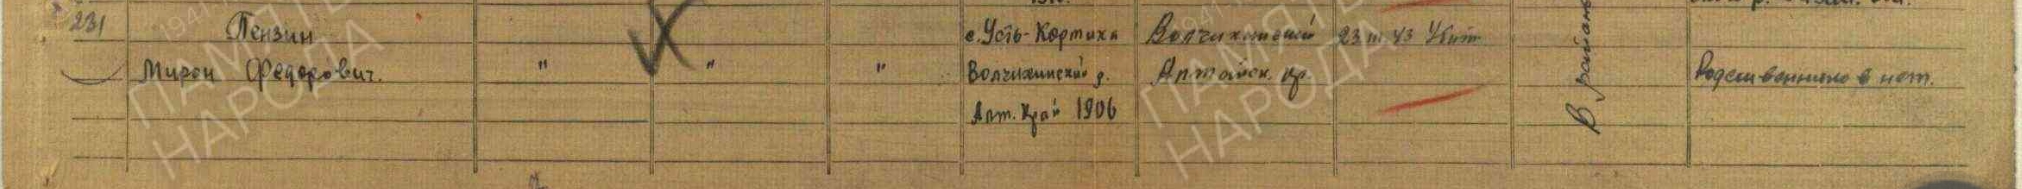 231 Пензин с. Усть-Кормиха Волчихинский 23 III 43 Убит В районе
Мирон Федорович. " " " Волчихинский р. Алтайск. кр. Родственников нет.
Алт. Край 1906
ПАМЯТЬ
НАРОДА
ПАМЯТЬ
НАРОДА